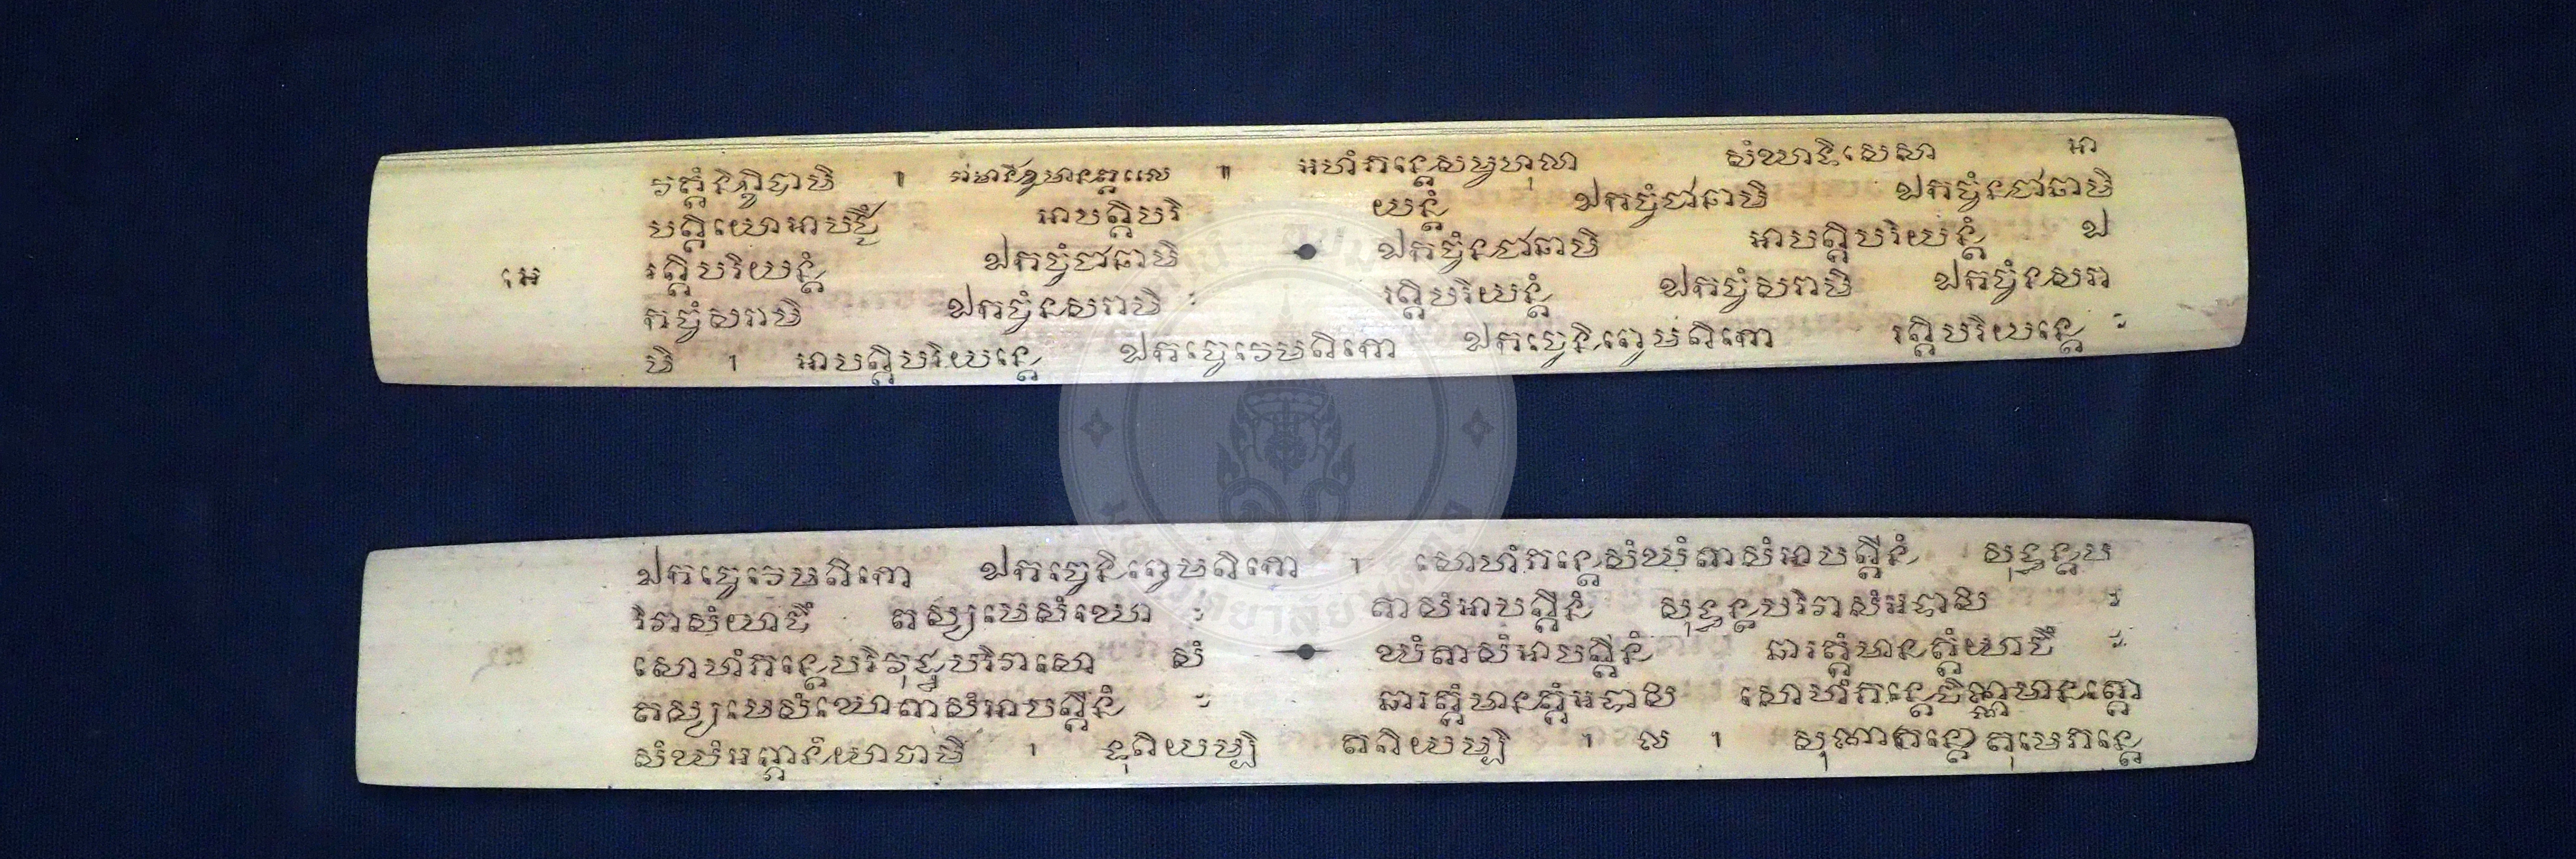 វត្តំនិក្ខិបាមិ ។ ៕ អហំភន្តេសម្ពហុលា សំឃាទិសេសា អា
បត្តិយោអាបជ្ជឹ អាបត្តិបរិ យន្តំ ឯកច្ចំជានាមិ ឯកច្ចំនជានាមិ
អេ រត្តិបរិយន្តំ ឯកច្ចំជានាមិ ឯកច្ចំនជានាមិ អាបត្តិបរិយន្តំ ឯ
កច្ចំសរាមិ ឯកច្ចំនសរាមិ ៈ រត្តិបរិយន្តំ ឯកច្ចំសរាមិ ឯកច្ចំនសរា
មិ ។ អាបត្តិបរិយន្តេ ឯកច្ចេវេមតិកោ ឯកច្ចេនិព្វេមតិកោ រត្តិបរិយន្តេ ៈ
ឯកច្ចេវេមតិកោ ឯកច្ចេនិព្វេមតិកោ ។ សោហំភន្តេសំឃំតាសំអាបត្តីនំ សុទ្ធន្តប
រិវាសំយាចឹ តស្សមេសំឃោ ៈ តាសំអាបត្តីនំ សុទ្ធន្តបរិវាសំអទាសិ ៈ
សោហំភន្តេបរិវុដ្ឋបរិវាសោ សំ ឃំតាសំអាបត្តីនំ ឆារត្តំមានត្តំយាចឹ ៈ
តស្សមេសំឃោតាសំអាបត្តីនំ ៈ ឆារត្តំមានត្តំអទាសិ សោហំភន្តេចិណ្ណមានត្តោ
សំឃំអព្ភានំយាចាមិ ។ ទុតិយម្បិ តតិយម្បិ ។ ល ។